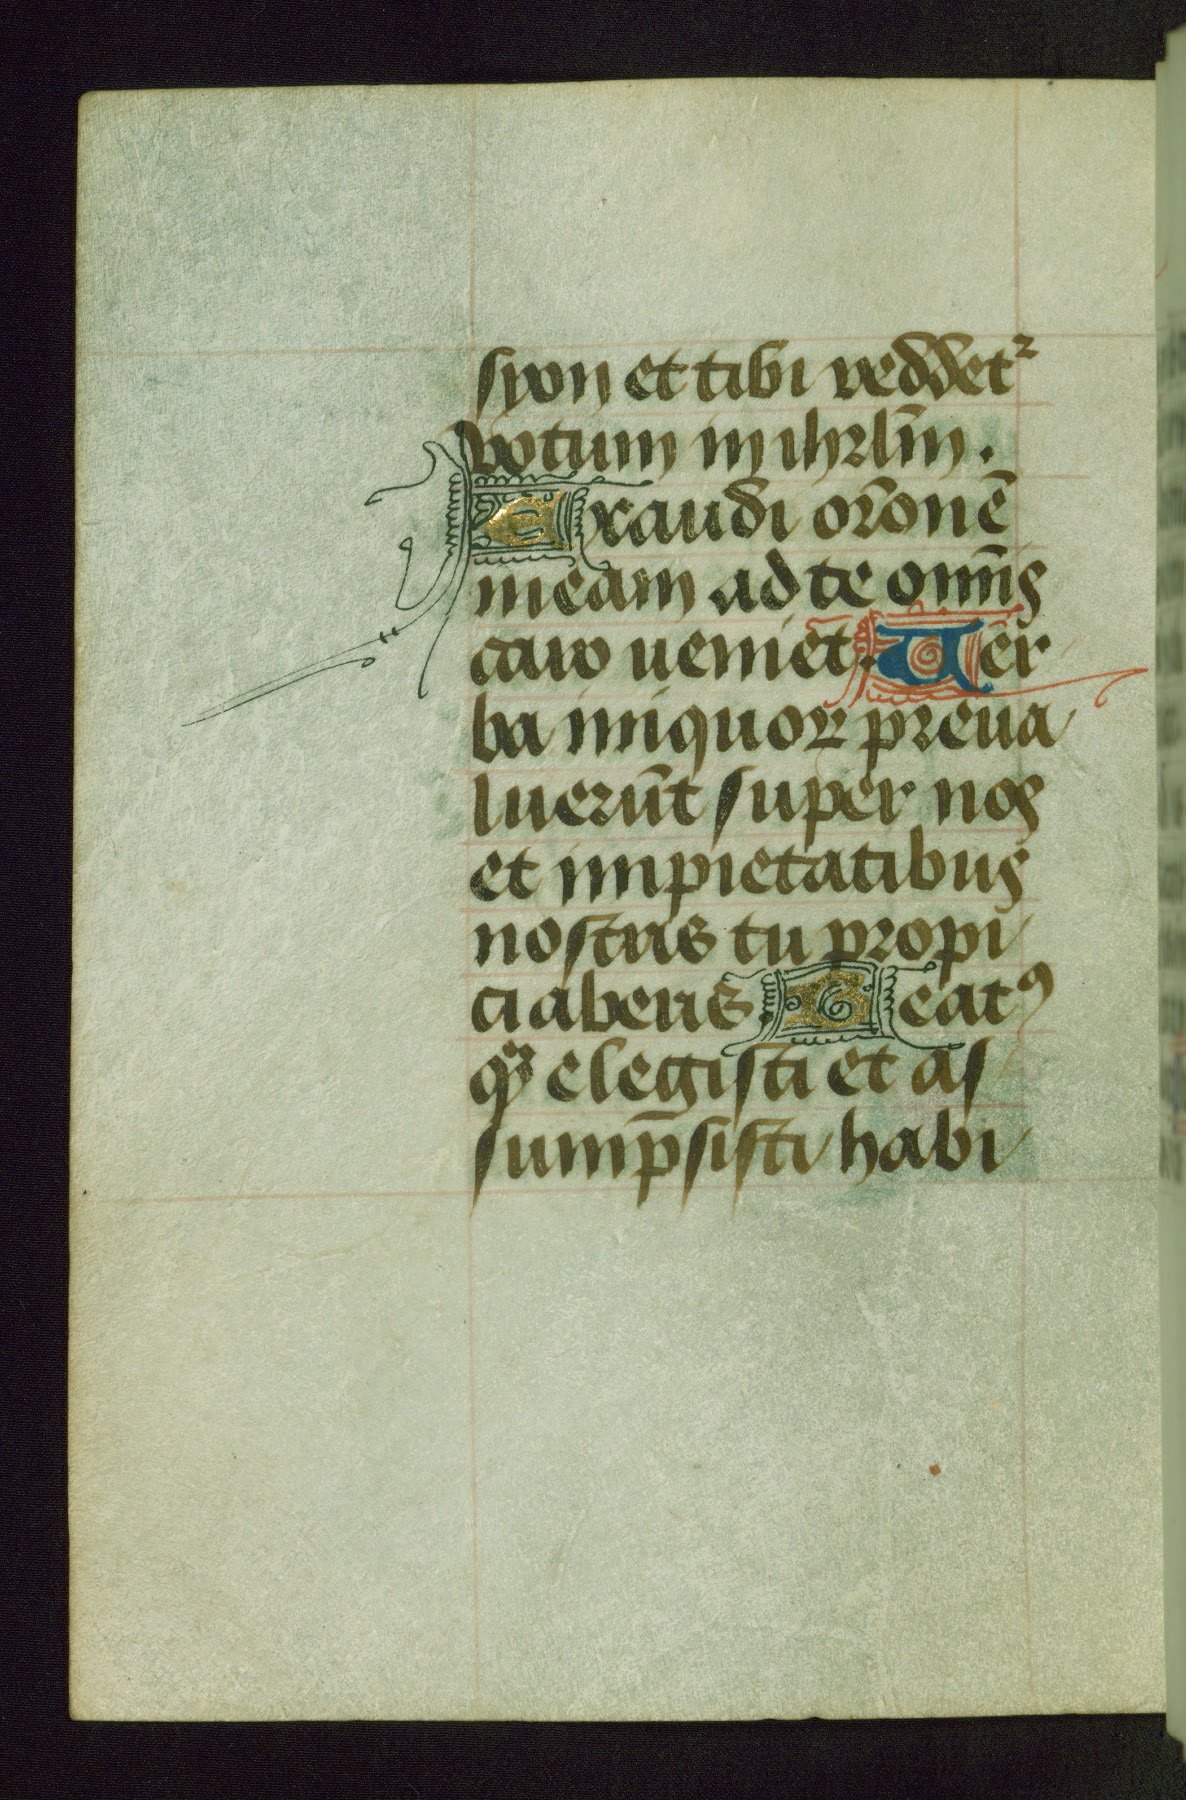 syon et tibi reddet᷑
votum in ihrlm̄.
Exaudi or̄onē
meam ad te omn̄is
caro veniet. Uer
ba iniquoꝝ preua
luerūt super nos
et impietatibus
nostris tu propi
ciaberis Beatꝯ
quē elegisti et as
sump̄sisti habi